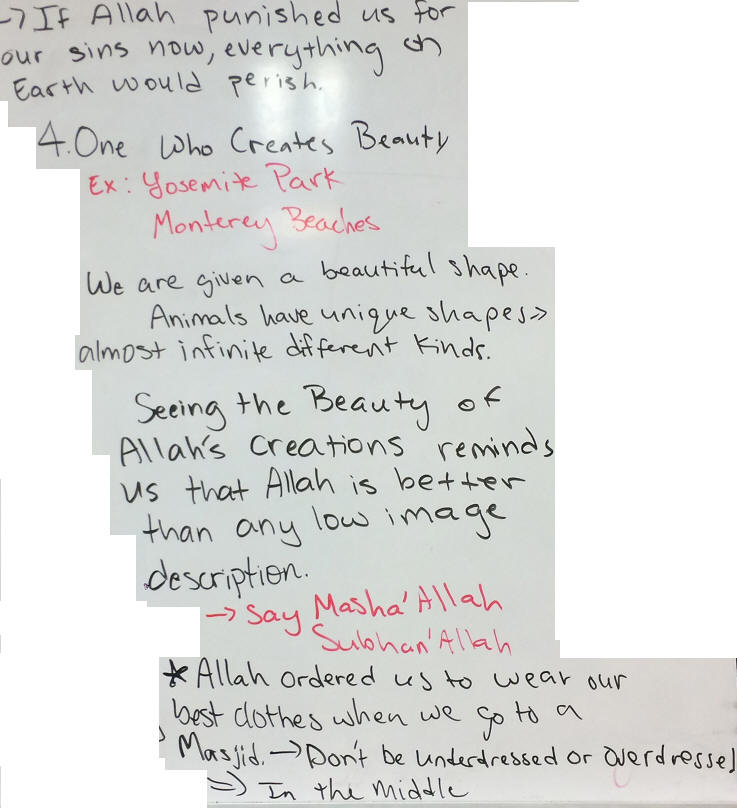 → If Allah punished us for
our sins now, everything on
Earth would perish.
4. One Who Creates Beauty
Ex: Yosemite Park
Monterey Beaches
We are given a beautiful shape.
Animals have unique shapes →
almost infinite different kinds.
Seeing the Beauty of
Allah's creations reminds
us that Allah is better
than any low image
description.
→ Say Masha'Allah
Subhan'Allah
* Allah ordered us to wear our
best clothes when we go to a
Masjid. → Don't be underdressed or overdressed
⇒ In the middle